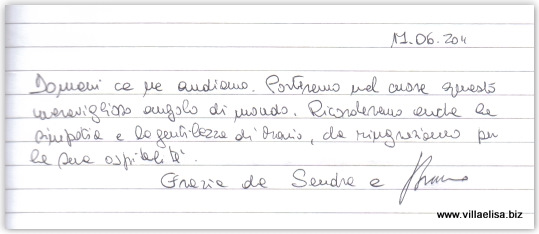 11.06.2011
Domani ce ne andiamo. Porteremo nel cuore questo
meraviglioso angolo di mondo. Ricorderemo anche la
simpatia e la gentilezza di Mario, da ringraziamo per
la sua ospitalità.
Grazie da Sandra e
www.villaelisa.biz